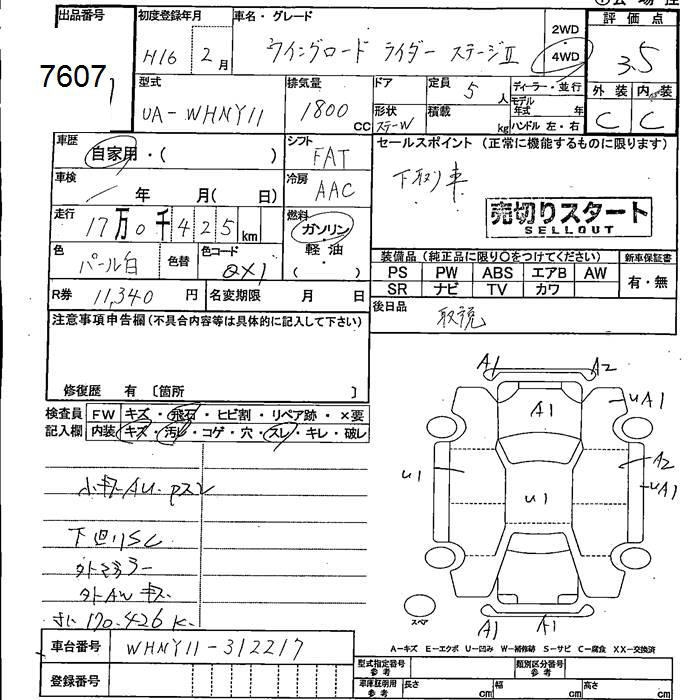 出品番号 7607
初度登録年月 H16 年 2月
車名・グレード ウイングロード ライダー ステージⅡ
2WD 4WD
評価点 3.5
外装 C 内装 C
型式 UA-WHNY11
排気量 1800 CC
ドア 形状 ステーW
定員 5人
積載 kg
ディーラー・並行
モデル年式 年
ハンドル 左・右
車歴 自家用・( )
シフト FAT
車検 年 月( 日)
冷房 AAC
走行 17万0千425km
燃料 ガソリン 軽油 ( )
色 パール白 色替
色コード QX1
R券 11,340円
名変期限 月 日
セールスポイント(正常に機能するものに限ります)
下取り車
売切りスタート
SELLOUT
装備品(純正品に限り○をつけてください)
新車保証書
PS PW ABS エアB AW
SR ナビ TV カワ
有・無
後日品 取説
注意事項申告欄(不具合内容等は具体的に記入して下さい)
修復歴 有〔箇所 〕
検査員記入欄
FW キズ・飛石・ヒビ割・リペア跡・×要
内装 キズ・汚レ・コゲ・穴・スレ・キレ・破レ
下廻りSC
外AWキズ
170.426K
A1 A2
A1
UA1
U1
U1
A2
UA1
スペア
A1 A1
A-キズ E-エクボ U-凹み W-補修跡 S-サビ C-腐食 XX-交換済
車台番号 WHNY11-312217
登録番号
型式指定番号 参考
類別区分番号 参考
車庫証明用 参考 長さ cm 幅 cm 高さ cm